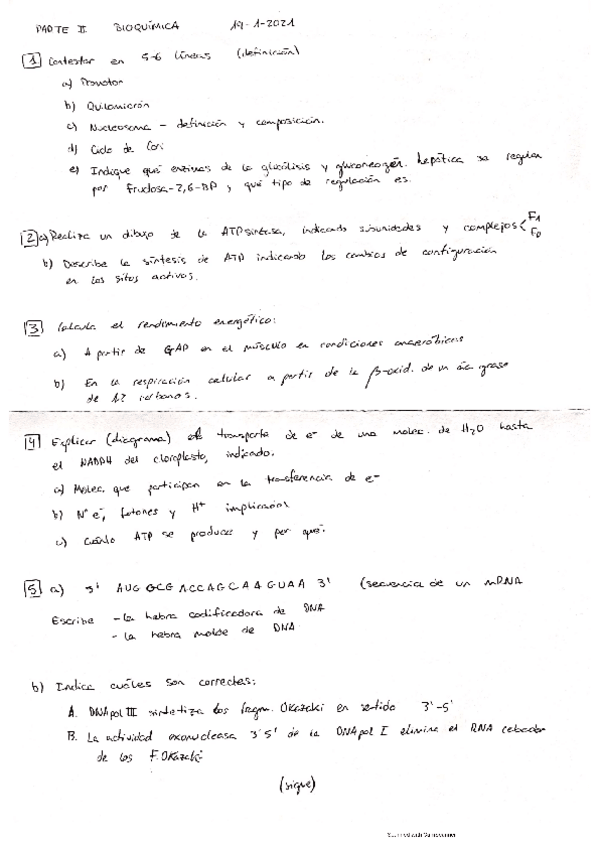 PARTE II BIOQUÍMICA 19-1-2021
1 Contestar en 5-6 líneas (definición)
a) Promotor
b) Quilomicrón
c) Nucleosoma - definición y composición.
d) Ciclo de Cori
e) Indique qué enzimas de la glucólisis y gluconeogén. hepática se regulan
por fructosa-2,6-BP y qué tipo de regulación es.
2 a) Realiza un dibujo de la ATP sintasa, indicando subunidades y complejos F1
F0
b) Describe la síntesis de ATP indicando los cambios de configuración
en los sitios activos.
3 Calcula el rendimiento energético:
a) A partir de GAP en el músculo en condiciones anaeróbicas
b) En la respiración celular a partir de la β-oxid. de un ác. graso
de 12 carbonos.
4 Explicar (diagrama) el transporte de e- de una molec. de H2O hasta
el NADPH del cloroplasto, indicando.
a) Molec. que participan en la transferencia de e-
b) Nº e-, fotones y H+ implicados
c) Cuánto ATP se produce y por qué.
5 a) 5' AUG GCG ACCAGCAAGUAA 3' (secuencia de un mRNA
Escribe - la hebra codificadora de DNA
- la hebra molde de DNA
b) Indica cuáles son correctas:
A. DNA pol III sintetiza los fragm. Okazaki en sentido 3'-5'
B. La actividad exonucleasa 3'5' de la DNA pol I elimina el RNA cebador
de los F. Okazaki
(sigue)